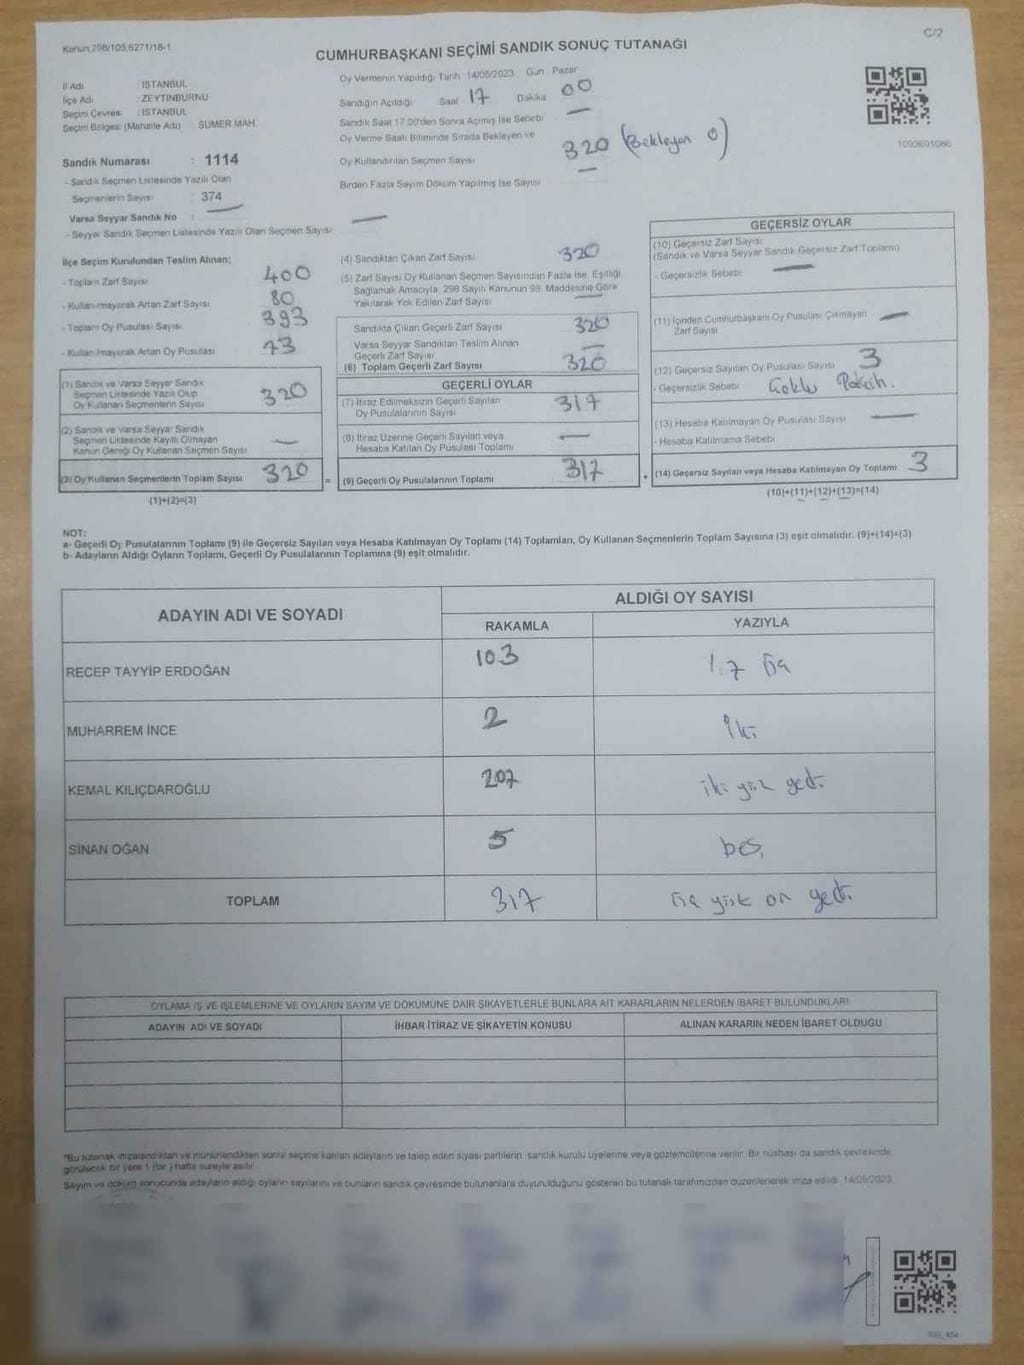 Kanun:298/105,6271/18-1
C/2
CUMHURBAŞKANI SEÇİMİ SANDIK SONUÇ TUTANAĞI
İl Adı : İSTANBUL
İlçe Adı : ZEYTİNBURNU
Seçim Çevres. : İSTANBUL
Seçim Bölges: (Mahalle Adı) SÜMER MAH.
Sandık Numarası : 1114
- Sandık Seçmen Listesinde Yazılı Olan
Seçmenlerin Sayısı : 374
Varsa Seyyar Sandık No :
- Seyyar Sandık Seçmen Listesinde Yazılı Olan Seçmen Sayısı
Oy Vermenin Yapıldığı Tarih 14/05/2023 Gün Pazar
Sandığın Açıldığı Saat 17 Dakika 00
Sandık Saat 17.00'den Sonra Açılmış İse Sebebi
Oy Verme Saati Bitiminde Sırada Bekleyen ve
Oy Kullandırılan Seçmen Sayısı 320 (Bekleyen 0)
Birden Fazla Sayım Döküm Yapılmış İse Sayısı
1093691086
İlçe Seçim Kurulundan Teslim Alınan;
- Toplam Zarf Sayısı 400
- Kullanılmayarak Artan Zarf Sayısı 80
- Toplam Oy Pusulası Sayısı 393
- Kullanılmayarak Artan Oy Pusulası 73
(1) Sandık ve Varsa Seyyar Sandık
Seçmen Listesinde Yazılı Olup
Oy Kullanan Seçmenlerin Sayısı 320
(2) Sandık ve Varsa Seyyar Sandık
Seçmen Listesinde Kayıtlı Olmayan
Kanun Gereği Oy Kullanan Seçmen Sayısı —
(3) Oy Kullanan Seçmenlerin Toplam Sayısı 320
(1)+(2)=(3)
(4) Sandıktan Çıkan Zarf Sayısı 320
(5) Zarf Sayısı Oy Kullanan Seçmen Sayısından Fazla İse, Eşitliği
Sağlamak Amacıyla, 298 Sayılı Kanunun 98. Maddesine Göre
Yakılarak Yok Edilen Zarf Sayısı —
Sandıkta Çıkan Geçerli Zarf Sayısı 320
Varsa Seyyar Sandıktan Teslim Alınan
Geçerli Zarf Sayısı —
(6) Toplam Geçerli Zarf Sayısı 320
GEÇERLİ OYLAR
(7) İtiraz Edilmeksizin Geçerli Sayılan
Oy Pusulalarının Sayısı 317
(8) İtiraz Üzerine Geçerli Sayılan veya
Hesaba Katılan Oy Pusulası Toplamı —
= (9) Geçerli Oy Pusulalarının Toplamı 317
GEÇERSİZ OYLAR
(10) Geçersiz Zarf Sayısı
(Sandık ve Varsa Seyyar Sandık Geçersiz Zarf Toplamı)
- Geçersizlik Sebebi —
(11) İçinden Cumhurbaşkanı Oy Pusulası Çıkmayan —
Zarf Sayısı
(12) Geçersiz Sayılan Oy Pusulası Sayısı 3
- Geçersizlik Sebebi Çoklu Tercih.
(13) Hesaba Katılmayan Oy Pusulası Sayısı —
- Hesaba Katılmama Sebebi
+ (14) Geçersiz Sayılan veya Hesaba Katılmayan Oy Toplamı 3
(10)+(11)+(12)+(13)=(14)
NOT:
a- Geçerli Oy Pusulalarının Toplamı (9) ile Geçersiz Sayılan veya Hesaba Katılmayan Oy Toplamı (14) Toplamları, Oy Kullanan Seçmenlerin Toplam Sayısına (3) eşit olmalıdır. (9)+(14)=(3)
b- Adayların Aldığı Oyların Toplamı, Geçerli Oy Pusulalarının Toplamına (9) eşit olmalıdır.
ADAYIN ADI VE SOYADI
ALDIĞI OY SAYISI
RAKAMLA YAZIYLA
RECEP TAYYİP ERDOĞAN 103
MUHARREM İNCE 2 iki
KEMAL KILIÇDAROĞLU 207 iki yüz yedi
SİNAN OĞAN 5 beş
TOPLAM 317 üç yüz on yedi
OYLAMA İŞ VE İŞLEMLERİNE VE OYLARIN SAYIM VE DÖKÜMÜNE DAİR ŞİKAYETLERLE BUNLARA AİT KARARLARIN NELERDEN İBARET BULUNDUKLARI
ADAYIN ADI VE SOYADI İHBAR İTİRAZ VE ŞİKAYETİN KONUSU ALINAN KARARIN NEDEN İBARET OLDUĞU
*Bu tutanak imzalandıktan ve mühürlendikten sonra seçime katılan adayların ve talep eden siyasi partilerin sandık kurulu üyelerine veya gözlemcilerine verilir. Bir nüshası da sandık çevresinde
görülecek bir yere 1 (bir) hafta süreyle asılır.
Sayım ve döküm sonucunda adayların aldığı oyların sayılarını ve bunların sandık çevresinde bulunanlara duyurulduğunu gösteren bu tutanak tarafımızdan düzenlenerek imza edildi. 14/05/2023